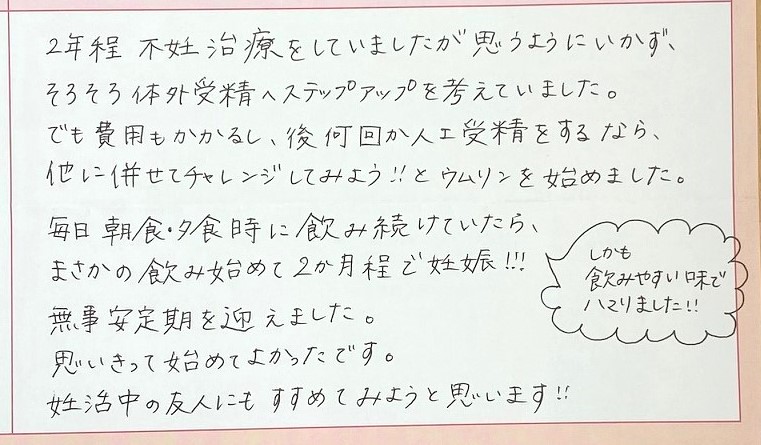 2年程 不妊治療をしていましたが思うようにいかず、
そろそろ体外受精へステップアップを考えていました。
でも費用もかかるし、後何回か人工受精をするなら、
他に併せてチャレンジしてみよう!!とウムリンを始めました。
毎日 朝食・夕食時に飲み続けていたら、
まさかの飲み始めて2か月程で妊娠!!!
しかも
飲みやすい味で
ハマりました!!
無事安定期を迎えました。
思いきって始めてよかったです。
妊活中の友人にもすすめてみようと思います!!